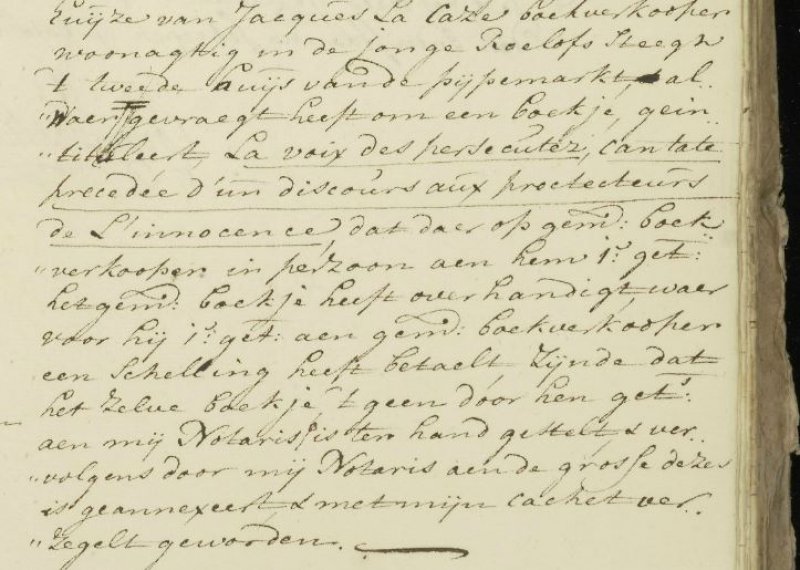 huijze van Jacques La Caze boekverkooper
woonagtig in de jonge Roelofs Steegh
't tweede huijs van de pijpemarkt, al„
„daer gevraegt heeft om een boekje, gein„
„tituleert, La voix des persecutéz, cantate
precedée d'un discours aux proctecteurs
de L'innocence, dat daer op gem: boek„
„verkooper in perzoon aen hem 1e. get:
het gem: boekje heeft overhandigt, waer
voor hij 1e. get: aen gem: boekverkooper
een Schelling heeft betaelt, Zijnde dat
het zelve boekje, 't geen door hen get:
aen mij Notaris is ter hand gestelt, & ver„
„volgens door mij Notaris aen de grosse dezes
is geannexeert, & met mijn cachet ver„
„zegelt geworden.